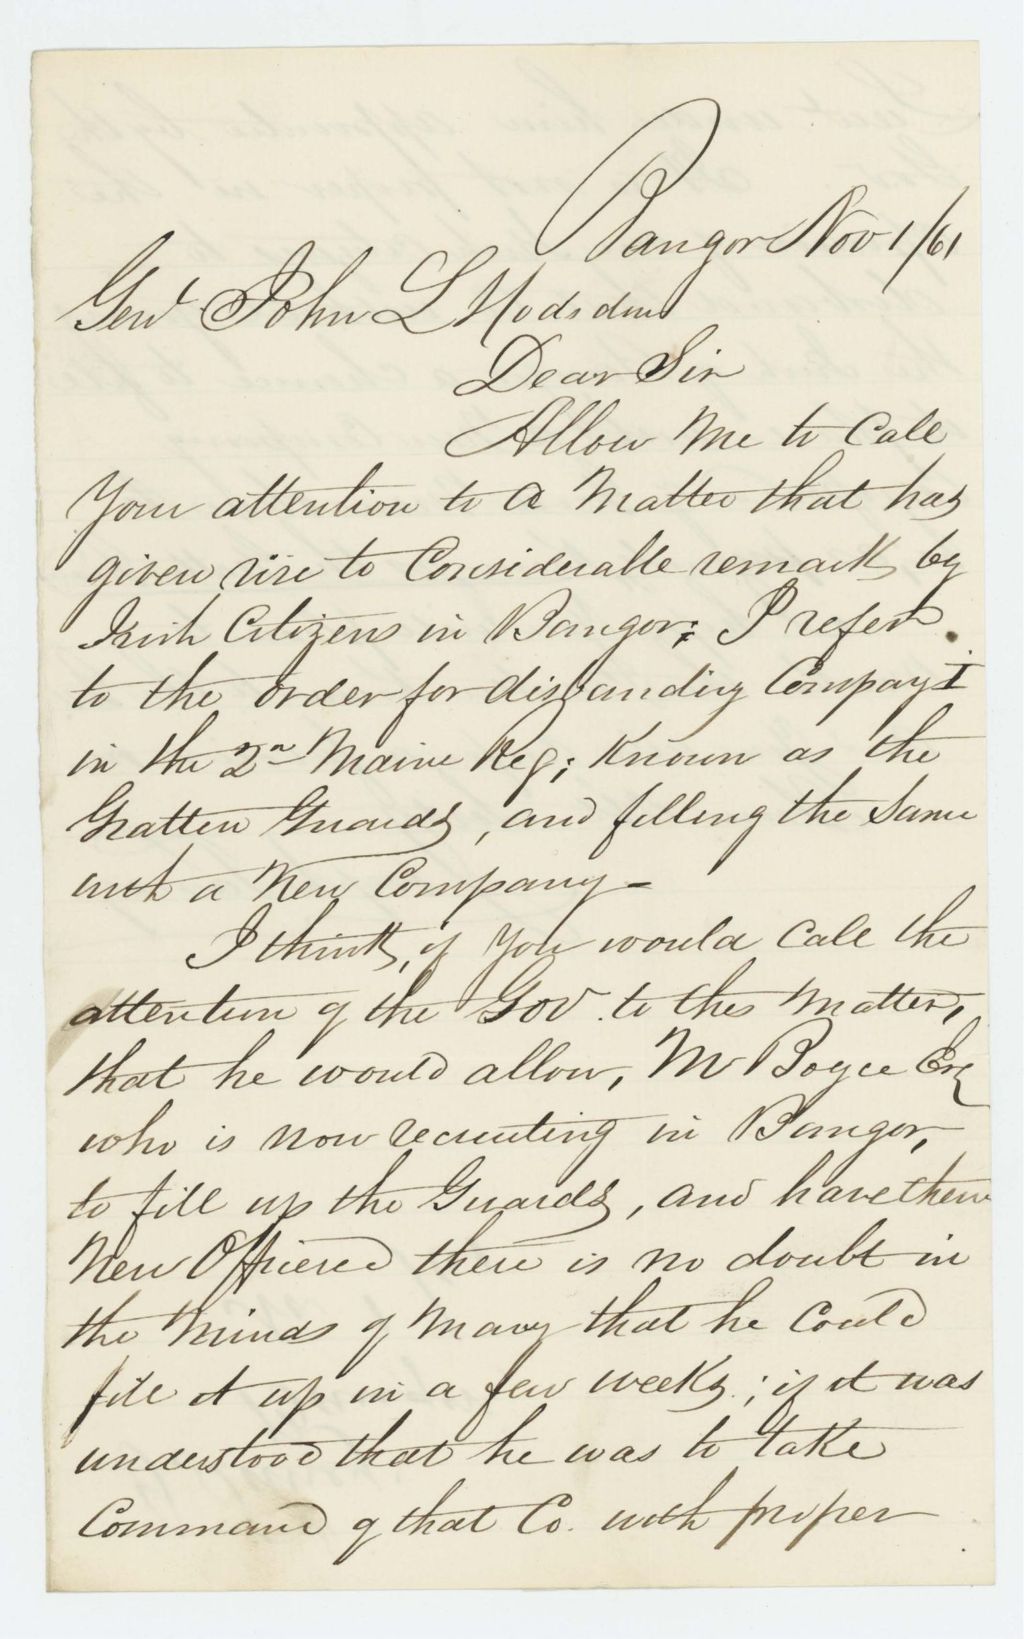 Bangor Nov 1/61
Genl John L Hodsdon
Dear Sir
Allow Me to Call
Your attention to a Matter that has
given rise to Considerable remark by
Irish Citizens in Bangor; I refer
to the order for disbanding Compay I
in the 2n Maine Reg; Known as the
Gratten Guards, and filling the Same
with a New Company-
I think, if You would Call the
attention of the Gov. to this Matter,
that he would allow, M Boyce Esq
who is now recruiting in Bangor,
to fill up the Guards, and have them
New Officered there is no doubt in
the Minds of Many that he Could
fill it up in a few weeks; if it was
understood that he was to take
Command of that Co. with proper